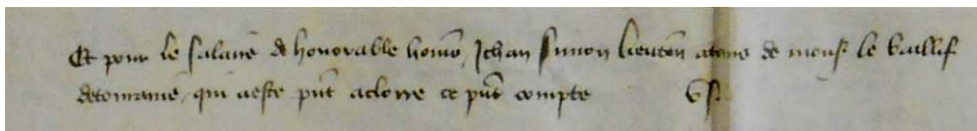 Et pour le salaire de honorable homme Jehan Simon lieuten a tours de mons. le baillif
de touraine qui a este pnt a clorre ce pnt compte V s.